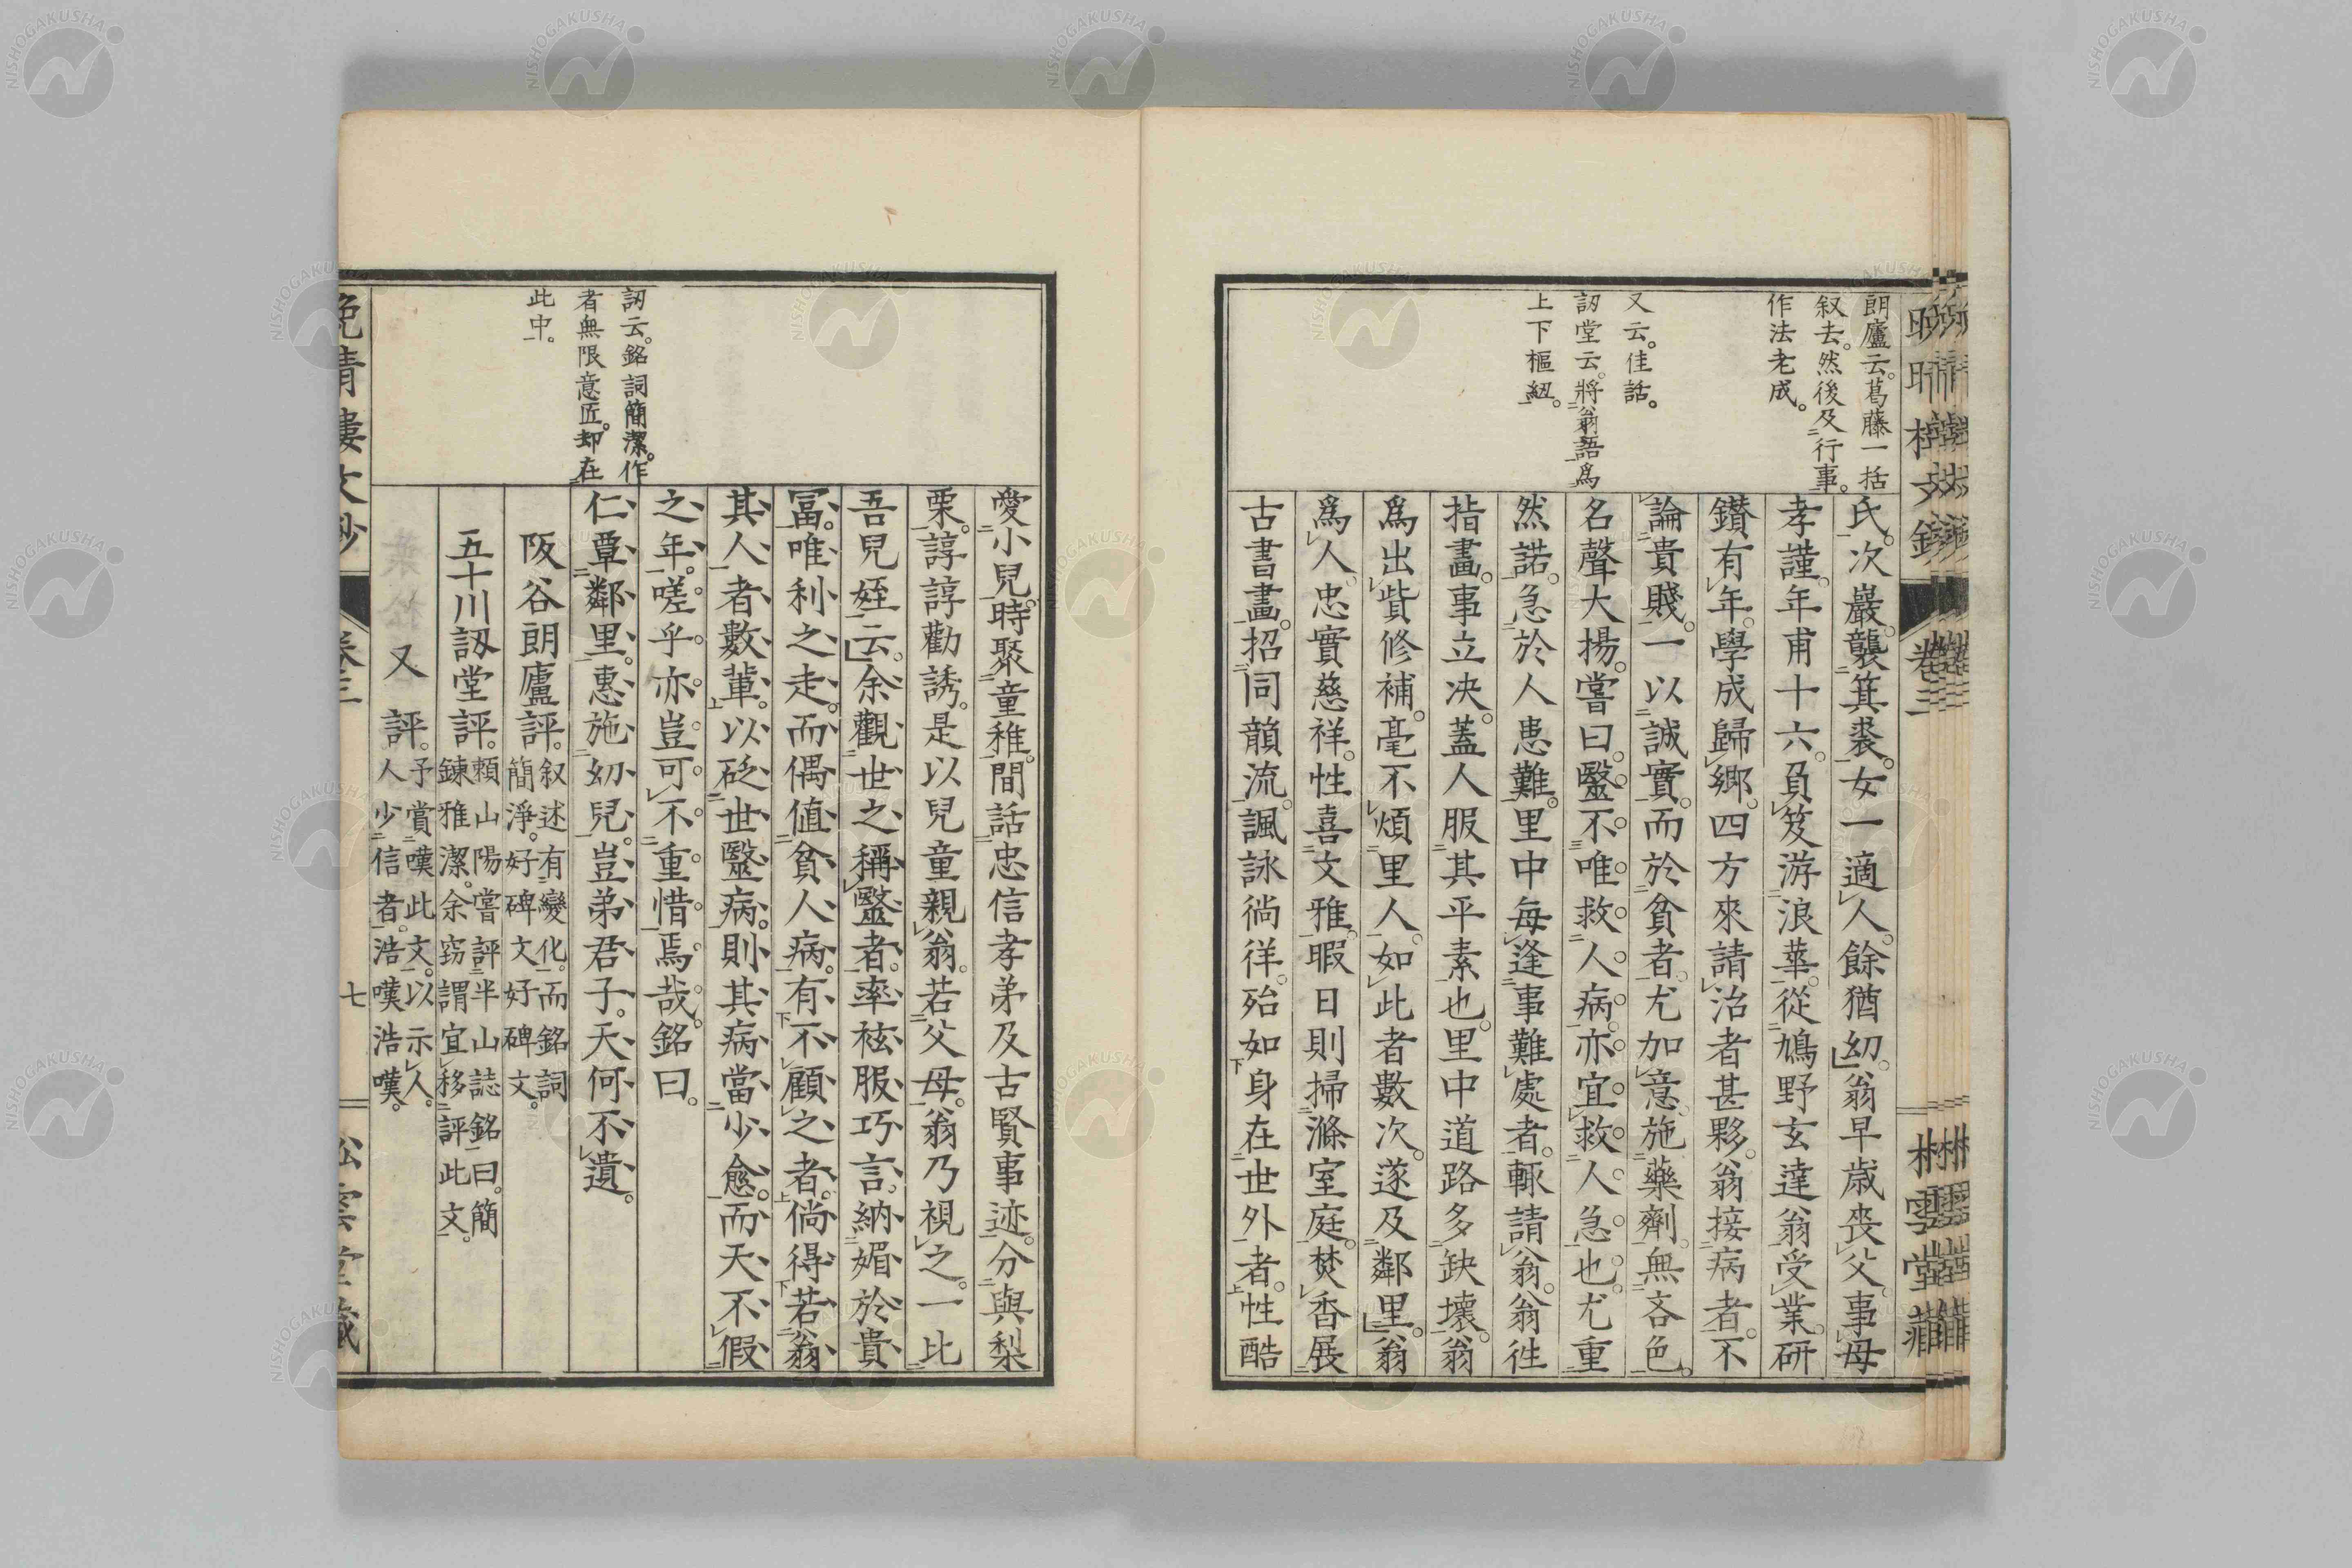 朗廬云。葛藤一括
叙去。然後及行事。
作法老成。
又云。佳話。
訒堂云。將翁語爲
上下樞紐。
氏。次嚴。襲箕裘。女一適人。餘猶幼。翁早歲喪父。事母
孝謹。年甫十六。負笈游浪華。從鳩野玄達翁受業。研
鑚有年。學成歸鄉。四方來請治者甚夥。翁接病者。不
論貴賤。一以誠實。而於貧者。尤加意。施藥劑。無吝色。
名聲大揚。嘗曰。醫不唯救人病。亦宜救人急也。尤重
然諾。急於人患難。里中每逢事難處者。輙請翁。翁徃
指畫。事立决。蓋人服其平素也。里中道路多缺壞。翁
爲出貲修補。毫不煩里人。如此者數次。遂及鄰里。翁
爲人忠實慈祥。性喜文雅。暇日則掃滌室庭。焚香展
古書畫。招同韻流。諷詠徜徉。殆如身在世外者。性酷
訒云。銘詞簡潔。作
者無限意匠。却在
此中。
愛小兒。時聚童稚。間話忠信孝弟及古賢事迹。分與梨
栗。諄諄勸誘。是以兒童親翁。若父母。翁乃視之。一比
吾兒姪云。余觀世之稱醫者。率袨服巧言。納媚於貴
冨。唯利之走。而偶値貧人病。有不顧之者。倘得若翁
其人者數輩。以砭世醫病。則其病當少愈。而天不假
之年。嗟乎。亦豈可不重惜焉哉。銘曰。
仁覃鄰里。惠施幼兒。豈弟君子。天何不遺。
阪谷朗廬評。叙述有變化。而銘詞
簡淨。好碑文好碑文。
五十川訒堂評。賴山陽嘗評半山誌銘曰。簡
鍊雅潔。余竊謂宜移評此文。
又評。予賞嘆此文。以示人。
人少信者。浩嘆浩嘆。
晩晴樓文鈔 卷三 七 松雲堂藏